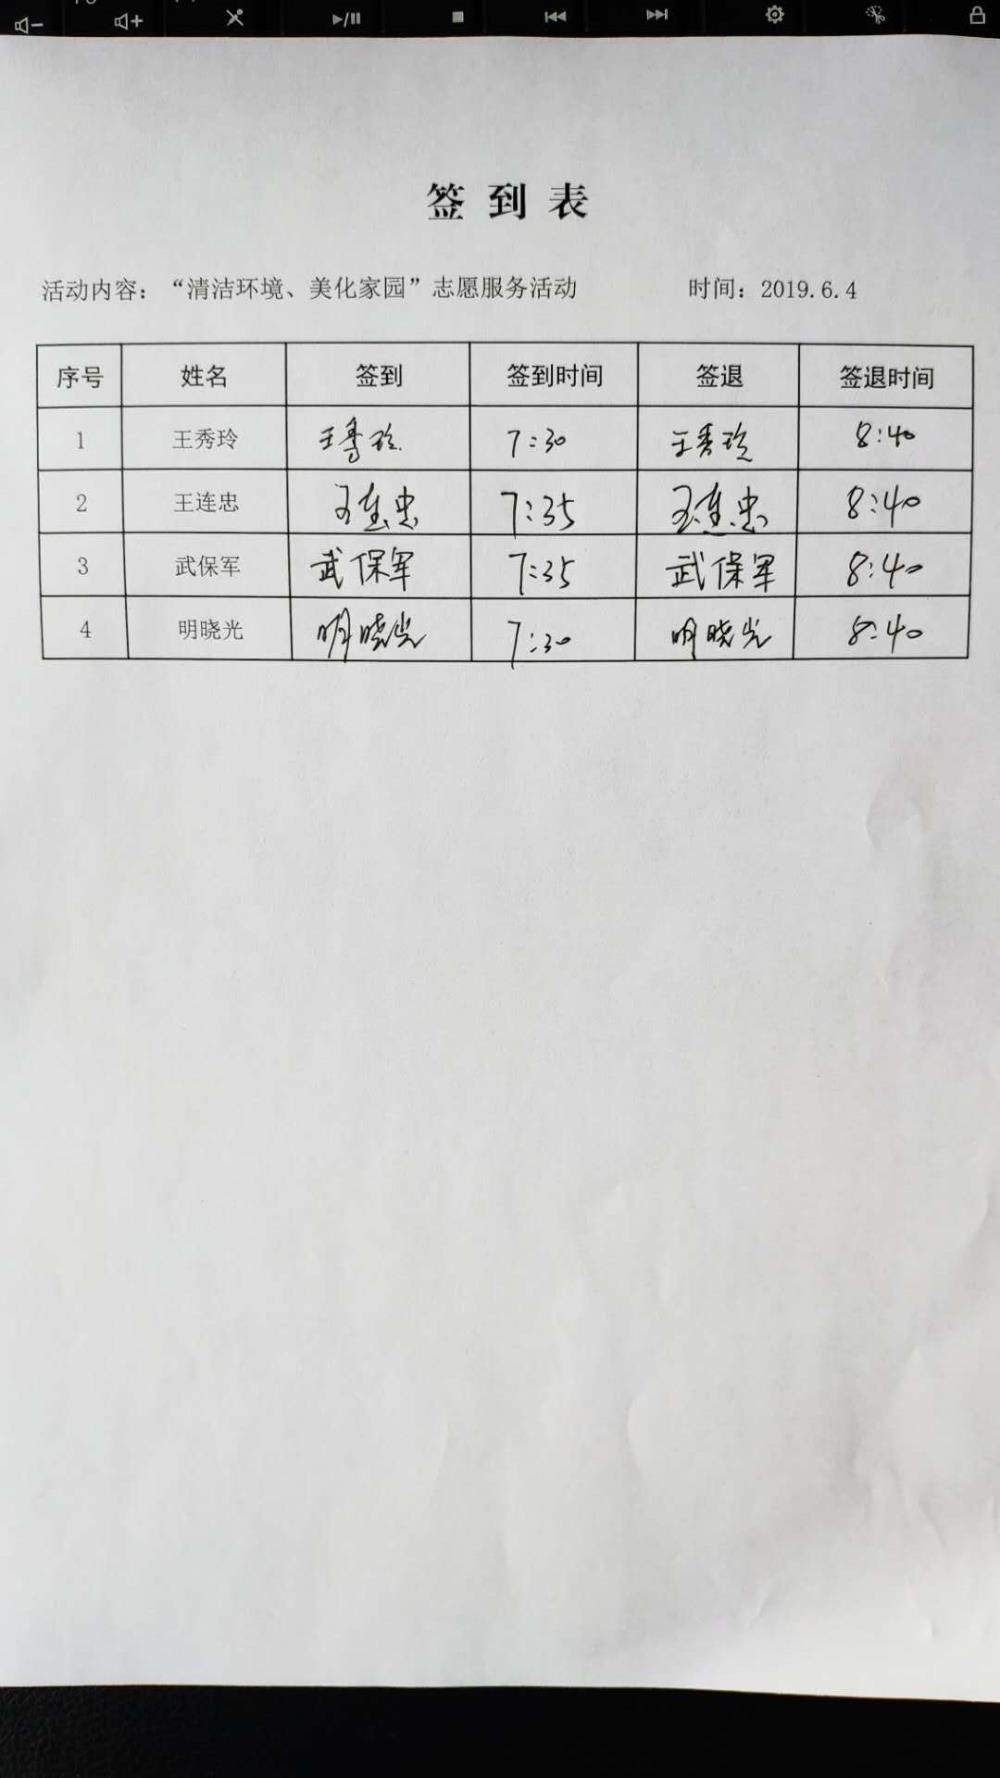 签到表
活动内容：“清洁环境、美化家园”志愿服务活动 时间：2019.6.4
序号 姓名 签到 签到时间 签退 签退时间
1 王秀玲 王秀玲 7:30 王秀玲 8:40
2 王连忠 王连忠 7:35 王连忠 8:40
3 武保军 武保军 7:35 武保军 8:40
4 明晓光 明晓光 7:30 明晓光 8:40